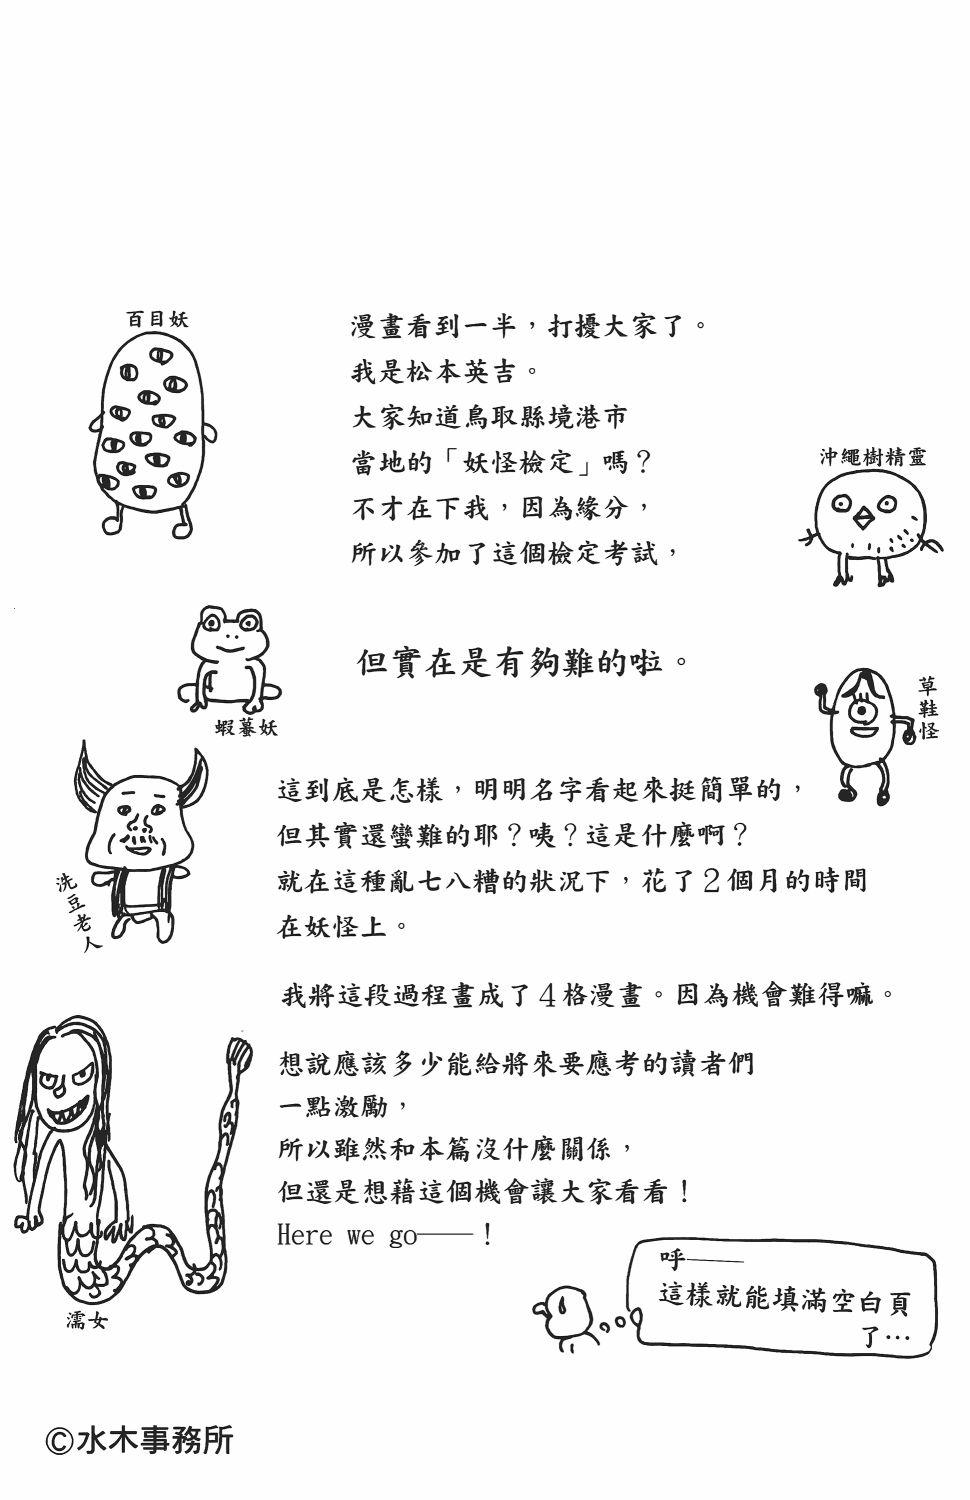 百目妖
漫畫看到一半，打擾大家了。
我是松本英吉。
大家知道鳥取縣境港市
當地的「妖怪檢定」嗎？
不才在下我，因為緣分，
所以參加了這個檢定考試，
沖繩樹精靈
但實在是有夠難的啦。
蝦蟇妖
草鞋怪
這到底是怎樣，明明名字看起來挺簡單的，
但其實還蠻難的耶？咦？這是什麼啊？
就在這種亂七八糟的狀況下，花了２個月的時間
在妖怪上。
洗豆老人
我將這段過程畫成了４格漫畫。因為機會難得嘛。
想說應該多少能給將來要應考的讀者們
一點激勵，
所以雖然和本篇沒什麼關係，
但還是想藉這個機會讓大家看看！
Here we go——！
濡女
呼——
這樣就能填滿空白頁
了…
©水木事務所